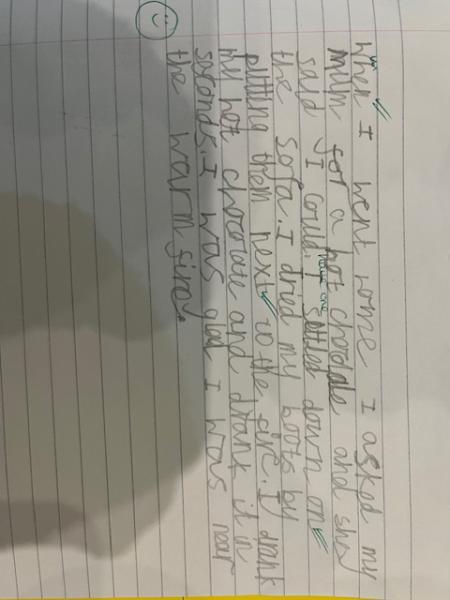 When I went home I asked my
mum for a hot chocolate and she
said I could have one. I settled down on
the sofa. I dried my boots by
putting them next to the fire. I drank
my hot chocolate and drank it in
seconds. I was glad I was near
the warm fire.